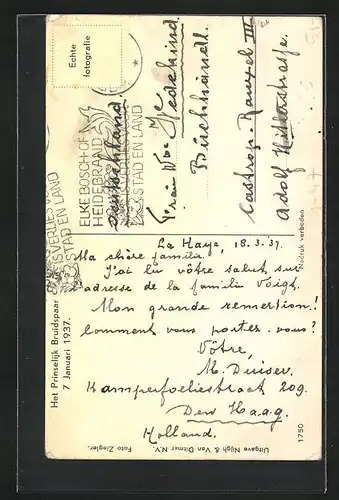 Echte
fotografie
ELKE BOSCH- OF
HEIDEBRAND
STAD EN LAND
STAD EN LAND
Deutschland.
Frau Wwe Wedekind
Buchhandl.
Castrop-Rauxel III
Adolf Hitlerstrasse.
La Haye, 18.3.37.
Ma chère famile!
J'ai lu vôtre salut sur
adresse de la familie Voigt.
Mon grande remersion!
Comment vous portez-vous?
Vôtre,
M. Duiser.
Kamperfoeliestraat 209.
Den Haag.
Holland.
Het Prinselijk Bruidspaar
7 Januari 1937.
Nadruk verboden
Uitgave Nijgh & Van Ditmar N.V. Foto Ziegler.
1750